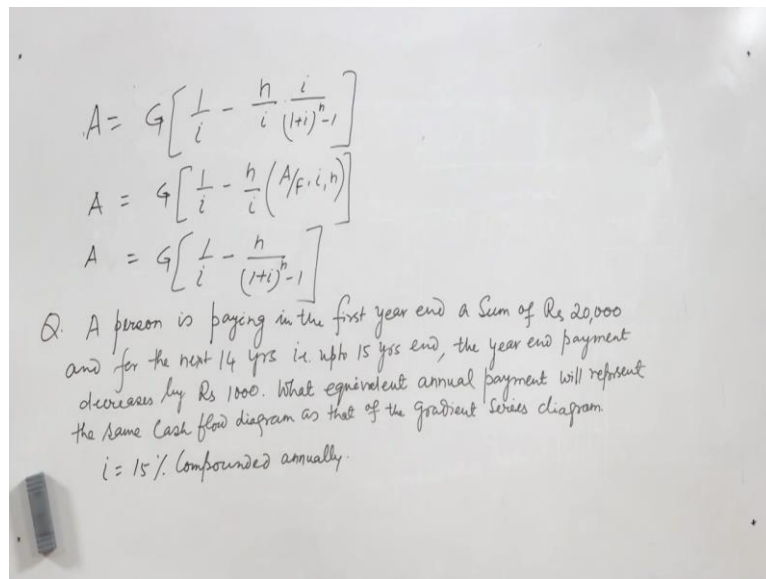 A = G[1/i - n/i · i/((1+i)^n - 1)]
A = G[1/i - n/i (A/F, i, n)]
A = G[1/i - n/((1+i)^n - 1)]
Q. A person is paying in the first year end a Sum of Rs 20,000
and for the next 14 yrs i.e. upto 15 yrs end, the year end payment
decreases by Rs 1000. What equivalent annual payment will represent
the same Cash flow diagram as that of the gradient Series diagram.
i = 15 % Compounded annually.